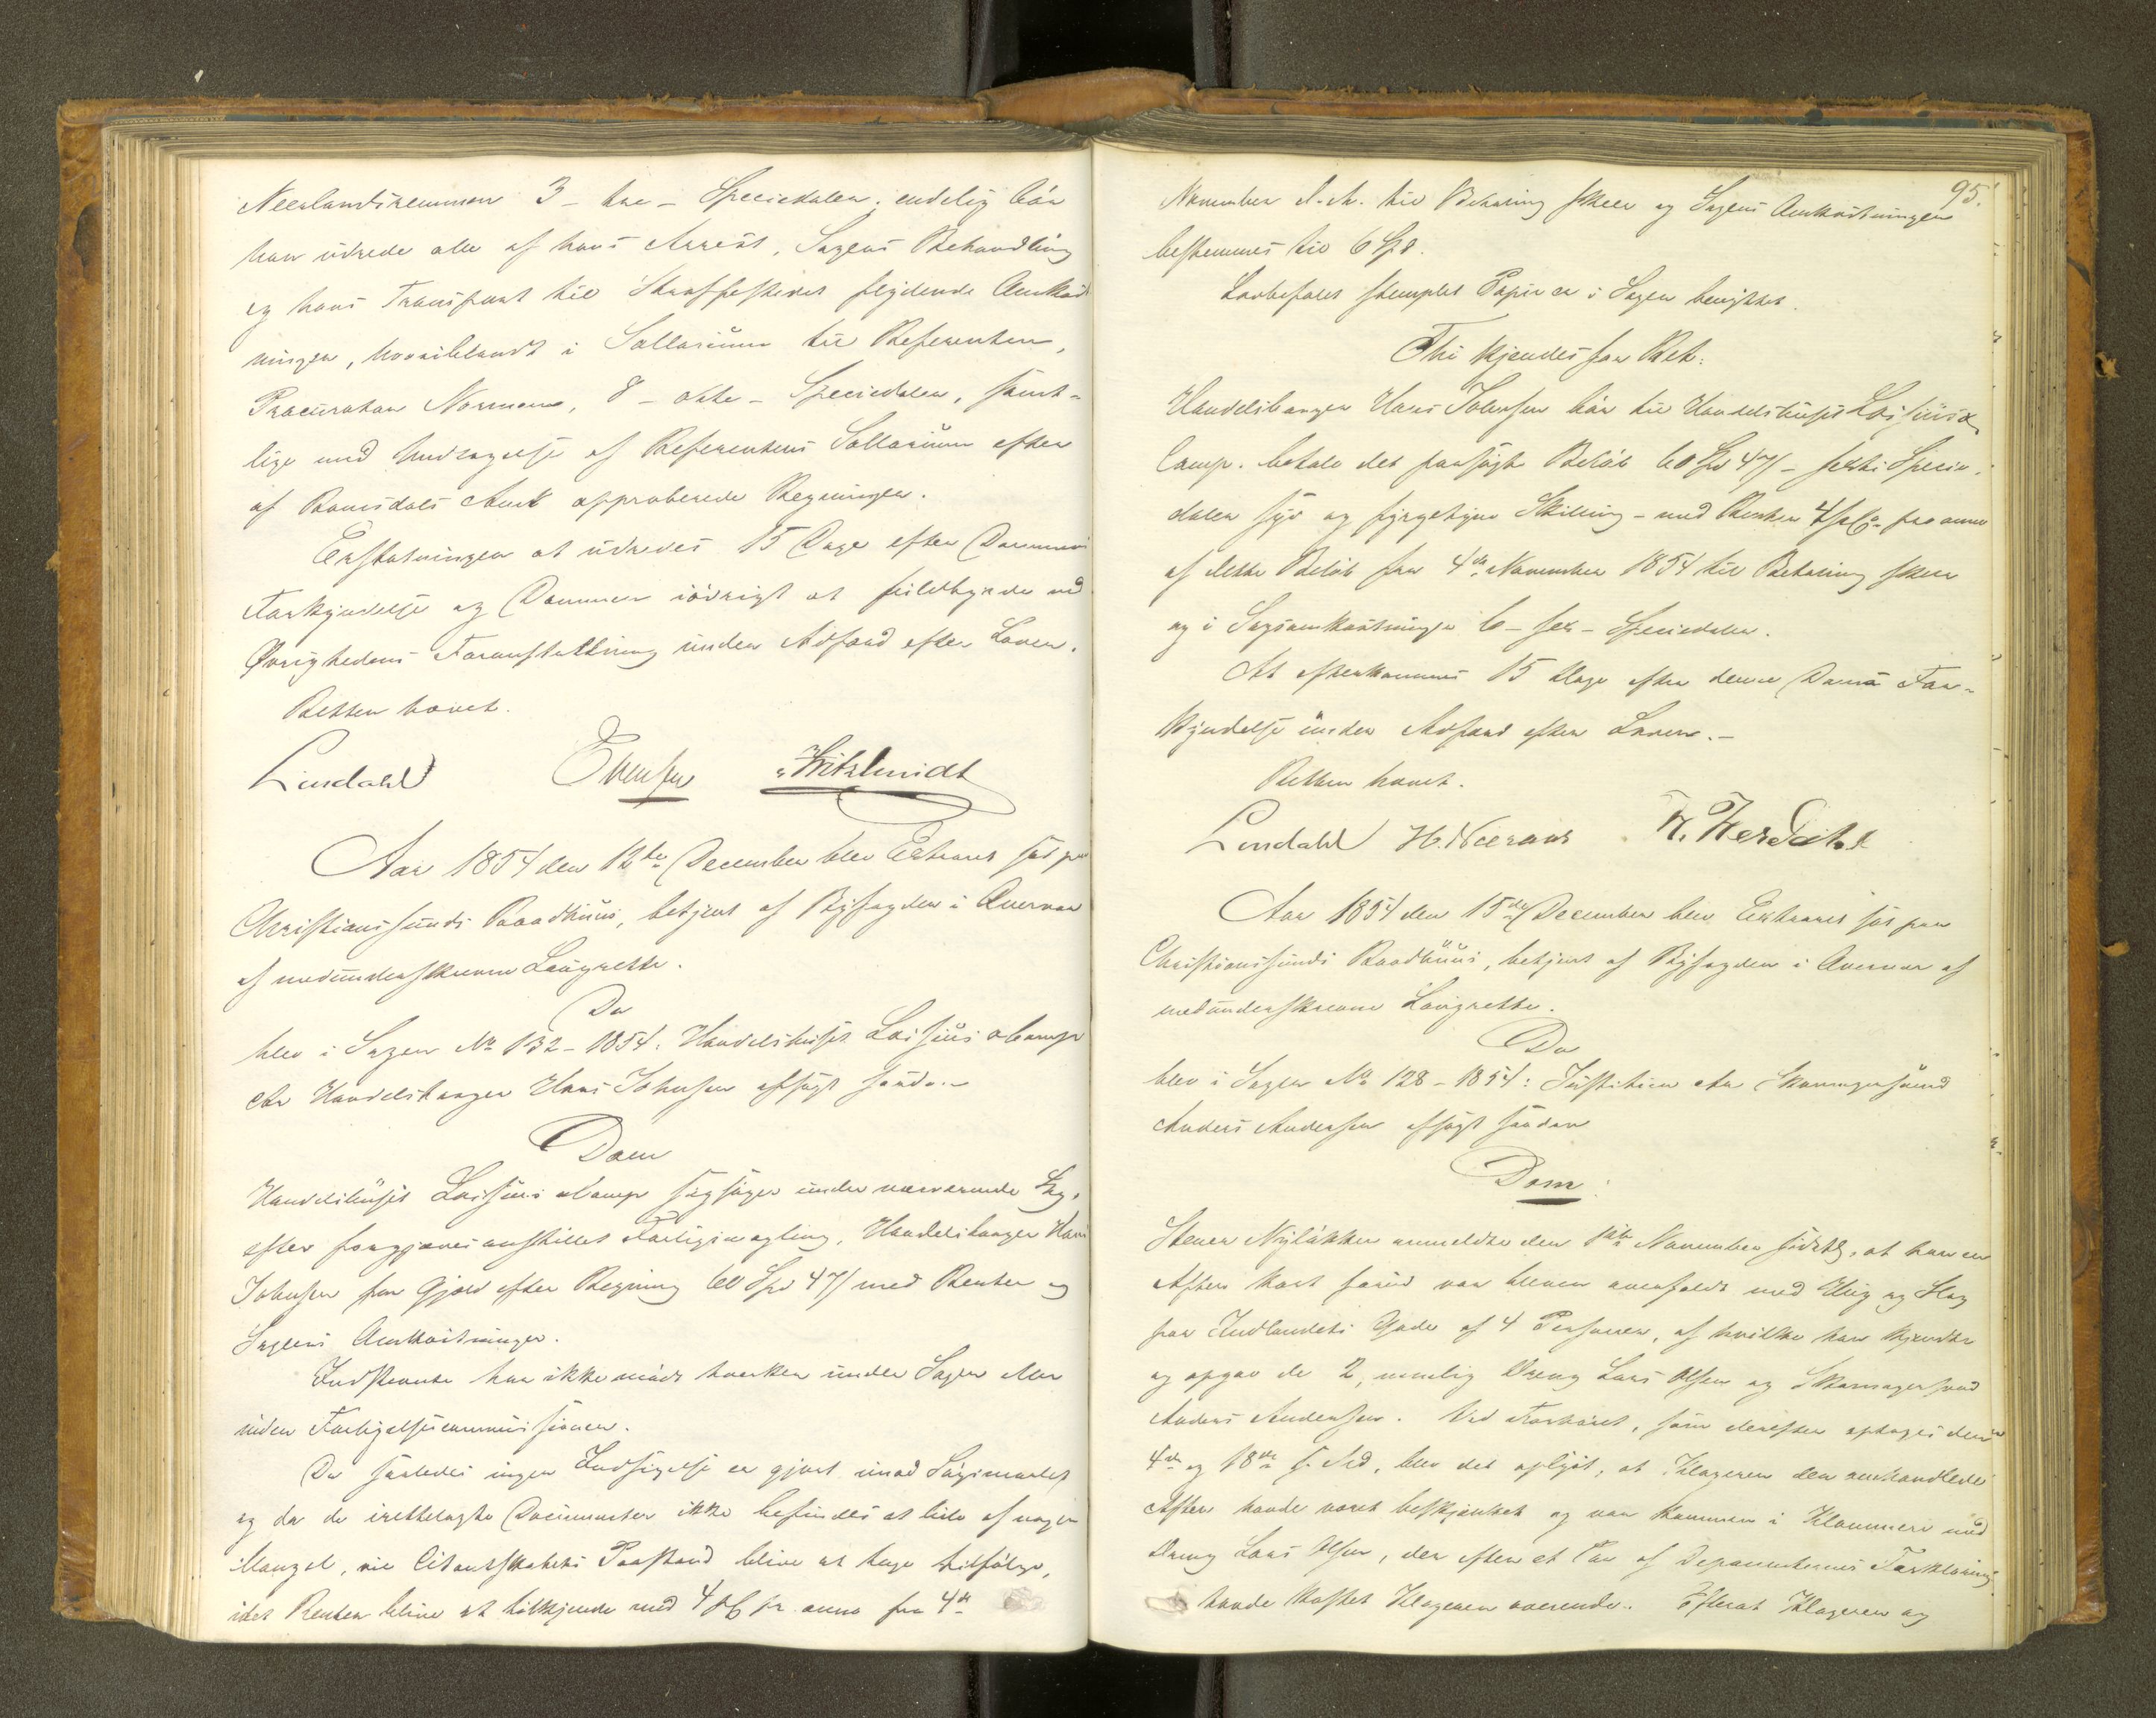 Neerlandskemmer 3 - tre - Speciedaler; endelig bör
han udrede alle af hans Arrest, Sagens Behandling
og hans Transport til Strafstedet flydende Omkost
ninger, hvoriblandt i Sallarium til Referenten,
Procurator Normann, 8 - otte - Speciedaler, samt-
lige med Undtagelse af Referentens Sallarium efter
af Romsdals Amt approberede Regninger.
Erstatningen at udredes 15 Dage efter Dommens
Forkyndelse og Dommen iövrigt at fuldbyrde ved
Øvrighedens Foranstaltning under Adfærd efter Loven.
Retten hævet.
Lindahl Evensen Kitzlmidt
Aar 1854 den 12te December blev Extraret sat paa
Christianssunds Raadhuus, betjent af Byfogden i Overvær
af medunderskrevne Laugrette.
Da
blev i Sagen No 132 - 1854: Handelshuset Loisius & Comp
ctr Handelsborger Hans Johnsen afsagt saadan
Dom
Handelshuset Loisius & Comp sagsöger under nærværende Sag,
efter forgjæves anstillet Forligsmægling, Handelsborger Hans
Johnsen for Gjæld efter Regning 60 Spd 47 s med Renter og
Sagens Omkostninger.
Indstevnte har ikke mödt hverken under Sagen eller
inden Forligelsescommissionen.
Da saaledes ingen Indsigelse er gjort imod Sögsmaalet
og da de irettelagte Documenter ikke befindes at lide af nogen
Mangel, vil Citantskabets Paastand blive at tage tilfölge,
idet Renten bliver at tilkjende med 4 pC pr. anno fra 4de
95.
November d. A. til Betaling skeer og Sagens Omkostninger
bestemmes til 6 Spd.
Lovbefalet stemplet Papir er i Sagen benyttet.
Thi kjendes for Ret:
Handelsborger Hans Johnsen bör til Handelshuset Loisius &
Comp. betale det paasögte Belöb 60 Spd 47 s - sexti Specie-
daler syv og fyrgetyve Skilling - med Renter 4 pC. pro anno
af dette Belöb fra 4de November 1854 til Betaling skeer
og i Sagsomkostninger 6 - sex - Speciedaler.
At efterkommes 15 Dage efter denne Doms For-
kyndelse under Adfærd efter Loven. -
Retten hævet.
Lindahl H. Neeraas
Aar 1854 den 15de December blev Extraret sat paa
Christianssunds Raadhuus, betjent af Byfogden i Overvær af
medunderskrevne Laugrette.
Da
blev i Sagen No 128 - 1854: Justitien ctr Skomagersvend
Anders Andersen afsagt saadan
Dom:
Stener Nylökken anmeldte den 1ste November sidstl., at han en
Aften kort forud var bleven overfaldt med Hug og Slag
paa Indlandets Gade af 4 Personer, af hvilke han kjendte
og opgav de 2, nemlig Dreng Lars Olsen og Skomagersvend
Anders Andersen. Ved Forhöret, som derefter optoges den
4de og 18de s. Md, blev det oplyst, at Klageren den omhandlede
Aften havde været beskjænket og var kommen i Klammeri med
Dreng Lars Olsen, der efter et Par af Deponenternes Forklaring
havde kastet Klageren overende. Efterat Klageren og